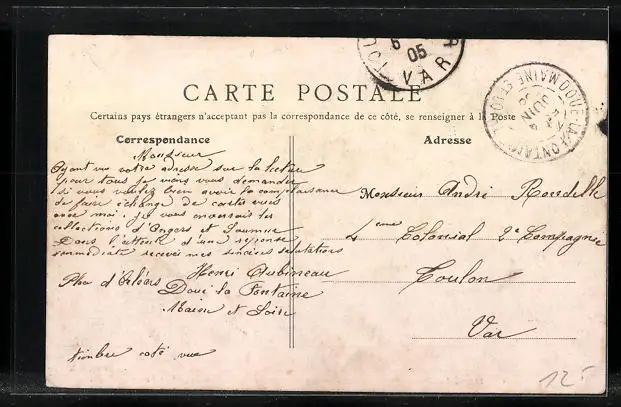 6
05
VAR
DOUÉ-LA-FONTAINE
JUIN
CARTE POSTALE
Certains pays étrangers n'acceptant pas la correspondance de ce côté, se renseigner à la Poste
Correspondance
Adresse
Monsieur
Ayant vu votre adresse sur la lecture
pour tous je vous demander
si vous voulez bien avoir la complaisance
de faire échange de cartes vues
avec moi. je vous enverrais les
collections d'Angers et Saumur
Dans l'attente d'une réponse
immédiate recevez mes sincères salutations
Henri Aubineau
Place d'Orléans
Doué la Fontaine
Maine et Loire
timbre coté vue
Monsieur André Rondelle
4eme Colonial 2e Compagnie
Toulon
Var
12-